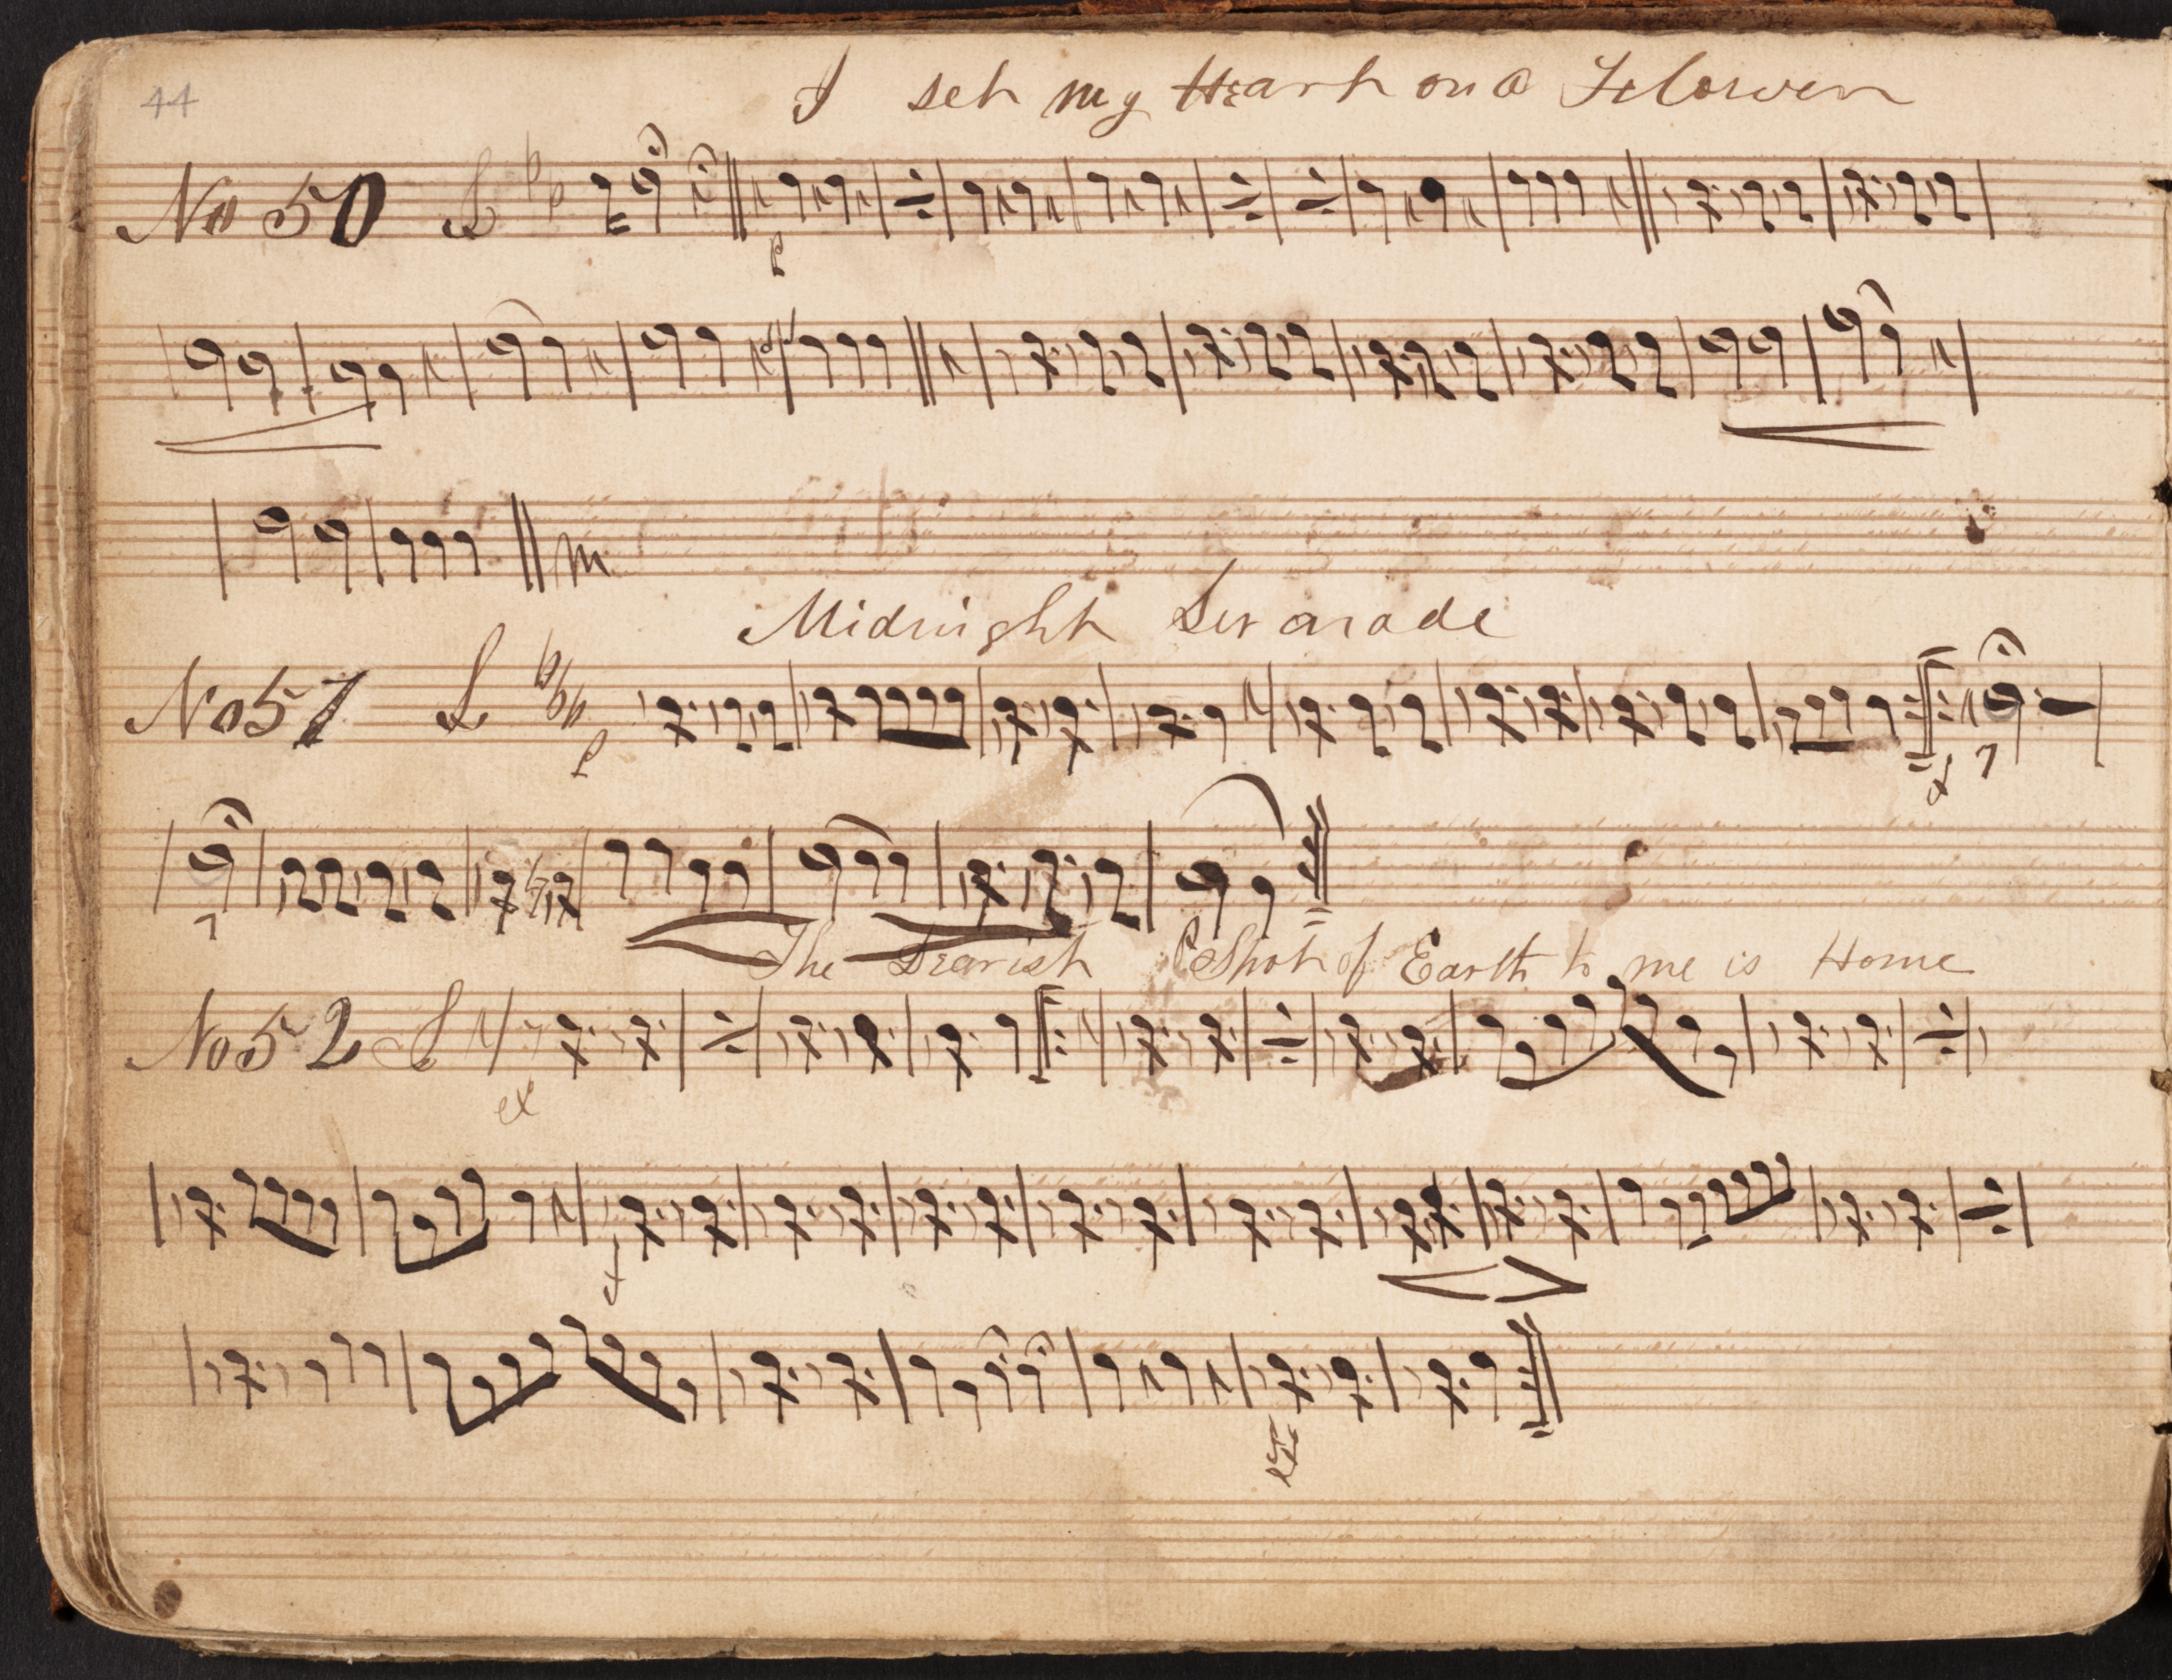 44
I set my Heart on a Flower
No 50
p
Midnight Seranade
No 51
p
f 7
7
The Dearish Spot of Earth to me is Home
No 52
f